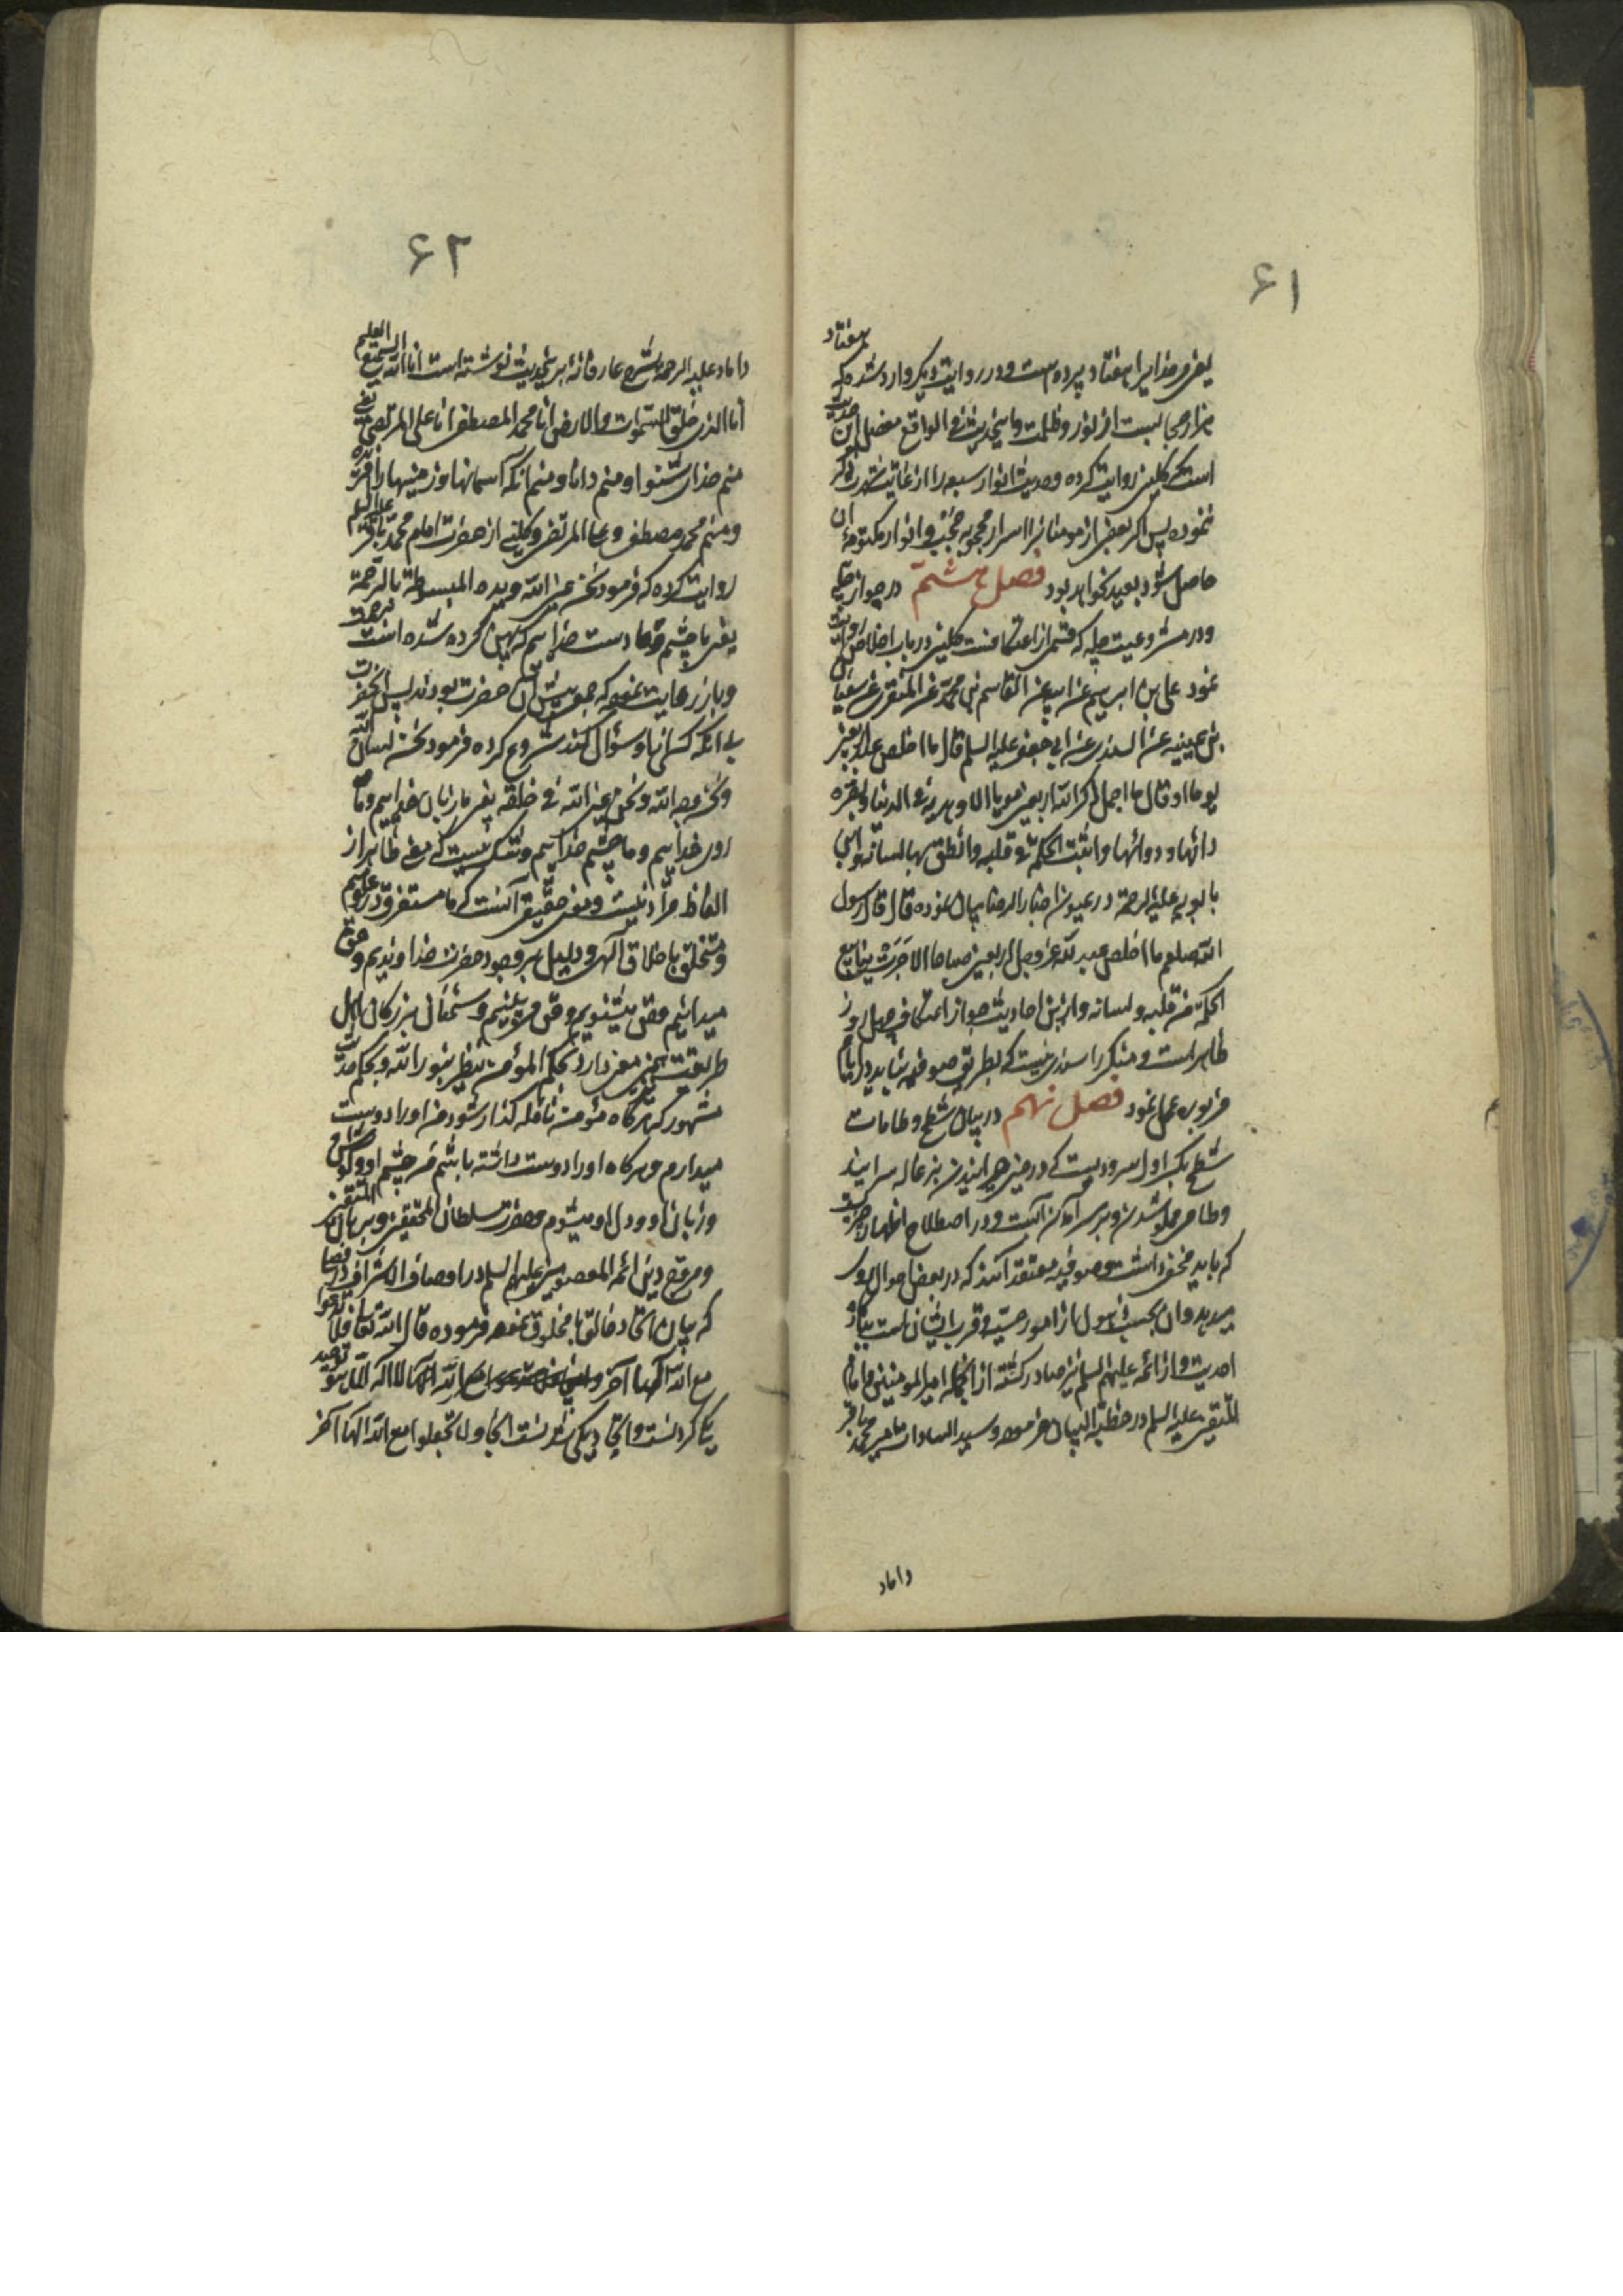 ۶۱
یعنی مر خدایرا هفتاد پرده هست و در روایت دیگر وارد شده که هفتاد
هزار حجابست از نور و ظلمت و ما نحن فی الواقع مفصل این حدیث
است که کلینی روایت کرده و حدیث انوار سبعه را از غایت شهرت ذکر
ننموده پس اگر بعضی از مومنانرا اسرار محجوبه حجب و انوار مکتومه آن
حاصل شود بعید نخواهد بود فصل هشتم در جواز چله
و در مشروعیت چله که قسمی از اعتکافست کلینی در باب اخلاص روایت
نمود علی بن ابرهیم عن ابیه عن القاسم بن محمد عن المنقری عن سفیان
بن عیینه عن السندی عن ابی جعفر علیه السلم قال ما اخلص عبد اربعین
یوما او قال ما اجمل ذکر الله اربعین یوما الا زهده فی الدنیا و بصره
دائها و دوائها و اثبت الحکمة فی قلبه و انطق بها لسانه و ابن
بابویه علیه الرحمه در عیون اخبار الرضا بیان نموده قال قال رسول
الله صلعم ما اخلص عبد لله عز وجل اربعین صباحا الا جرت ینابیع
الحکمة من قلبه و لسانه و ازین احادیث جواز اعتکاف چهل روز
ظاهر است و منکر را سندی نیست که بطریق صوفیه نشاید در ایام
مزبوره عمل نمود فصل نهم در بیان شطح و طامات
شطح بکسر اول سرودیست که در حین چرانیدن بزغاله سرایند
و طامی مملو شدن و بر سر آمدن آبست و در اصطلاح اظهار چیزیست
که باید مخفی داشت و صوفیه معتقد آنند که در بعض احوال روی
میدهد و ان بحسب ذهول از امور حسیه و قرب ایشان است به بارگاه
احدیت و از ائمه علیهم السلم نیز صادر گشته از انجمله امیر المومنین و امام
المتقین علیه السلم در خطبة البیان فرموده و سید السادات میر محمد باقر
داماد
۶۲
داماد علیه الرحمه شرح عارفانه بر نحدیث نوشته است انا الله السمیع العلیم
انا الذی خلق السموات و الارض انا محمد المصطفی انا علی المرتضی یعنی
منم خدای شنوا و منم دانا و منم انکه آسمانها و زمینها را آفریده
و منم محمد مصطفی و علی المرتضی و کلینی از حضرت امام محمد باقر علیه السلم
روایت کرده که فرمود نحن عین الله و یده المبسوطة بالرحمة
یعنی ما چشم خدا و دست خداییم که پهن کرده شده است برحمت
بی انکه کسی از او سؤال کند شروع کرده فرمود نحن لسان الله
و نحن وجه الله و نحن عین الله فی خلقه یعنی ما زبان خداییم و ما
روی خداییم و ما چشم خداییم و شک نیست که معنی ظاهر از
الفاظ مراد نیست و معنی حقیقی آنست که ما مستغرق در علوم
و متخلق باخلاق آلهی و دلیل بر وجود حضرت خداوندیم و حق
میدانیم و حق میشنویم و حق می بینیم و سخنان بزرگان اهل
طریقت همین معنی دارد بحکم المؤمن ینظر بنور الله و بحکم حدیث
مشهور که هرگاه مؤمن نافله گذار شود من او را دوست
میدارم و هرگاه او را دوست داشته باشم من چشم او و گوش
و زبان او و دل او میشوم و حضرت سلطان المحققین و برهان المتقین
و مروج دین ائمه المعصومین علیهم السلم در اوصاف الاشراف در فصل
که بیان اتحاد خالق با مخلوق نموده فرموده قال الله تعالی فلا تدعوا
مع الله آلها آخر لا اله الا هو توحید
یکی کردنست و اتحاد یکی شدنست انجا و لا تجعلوا مع الله الها آخر